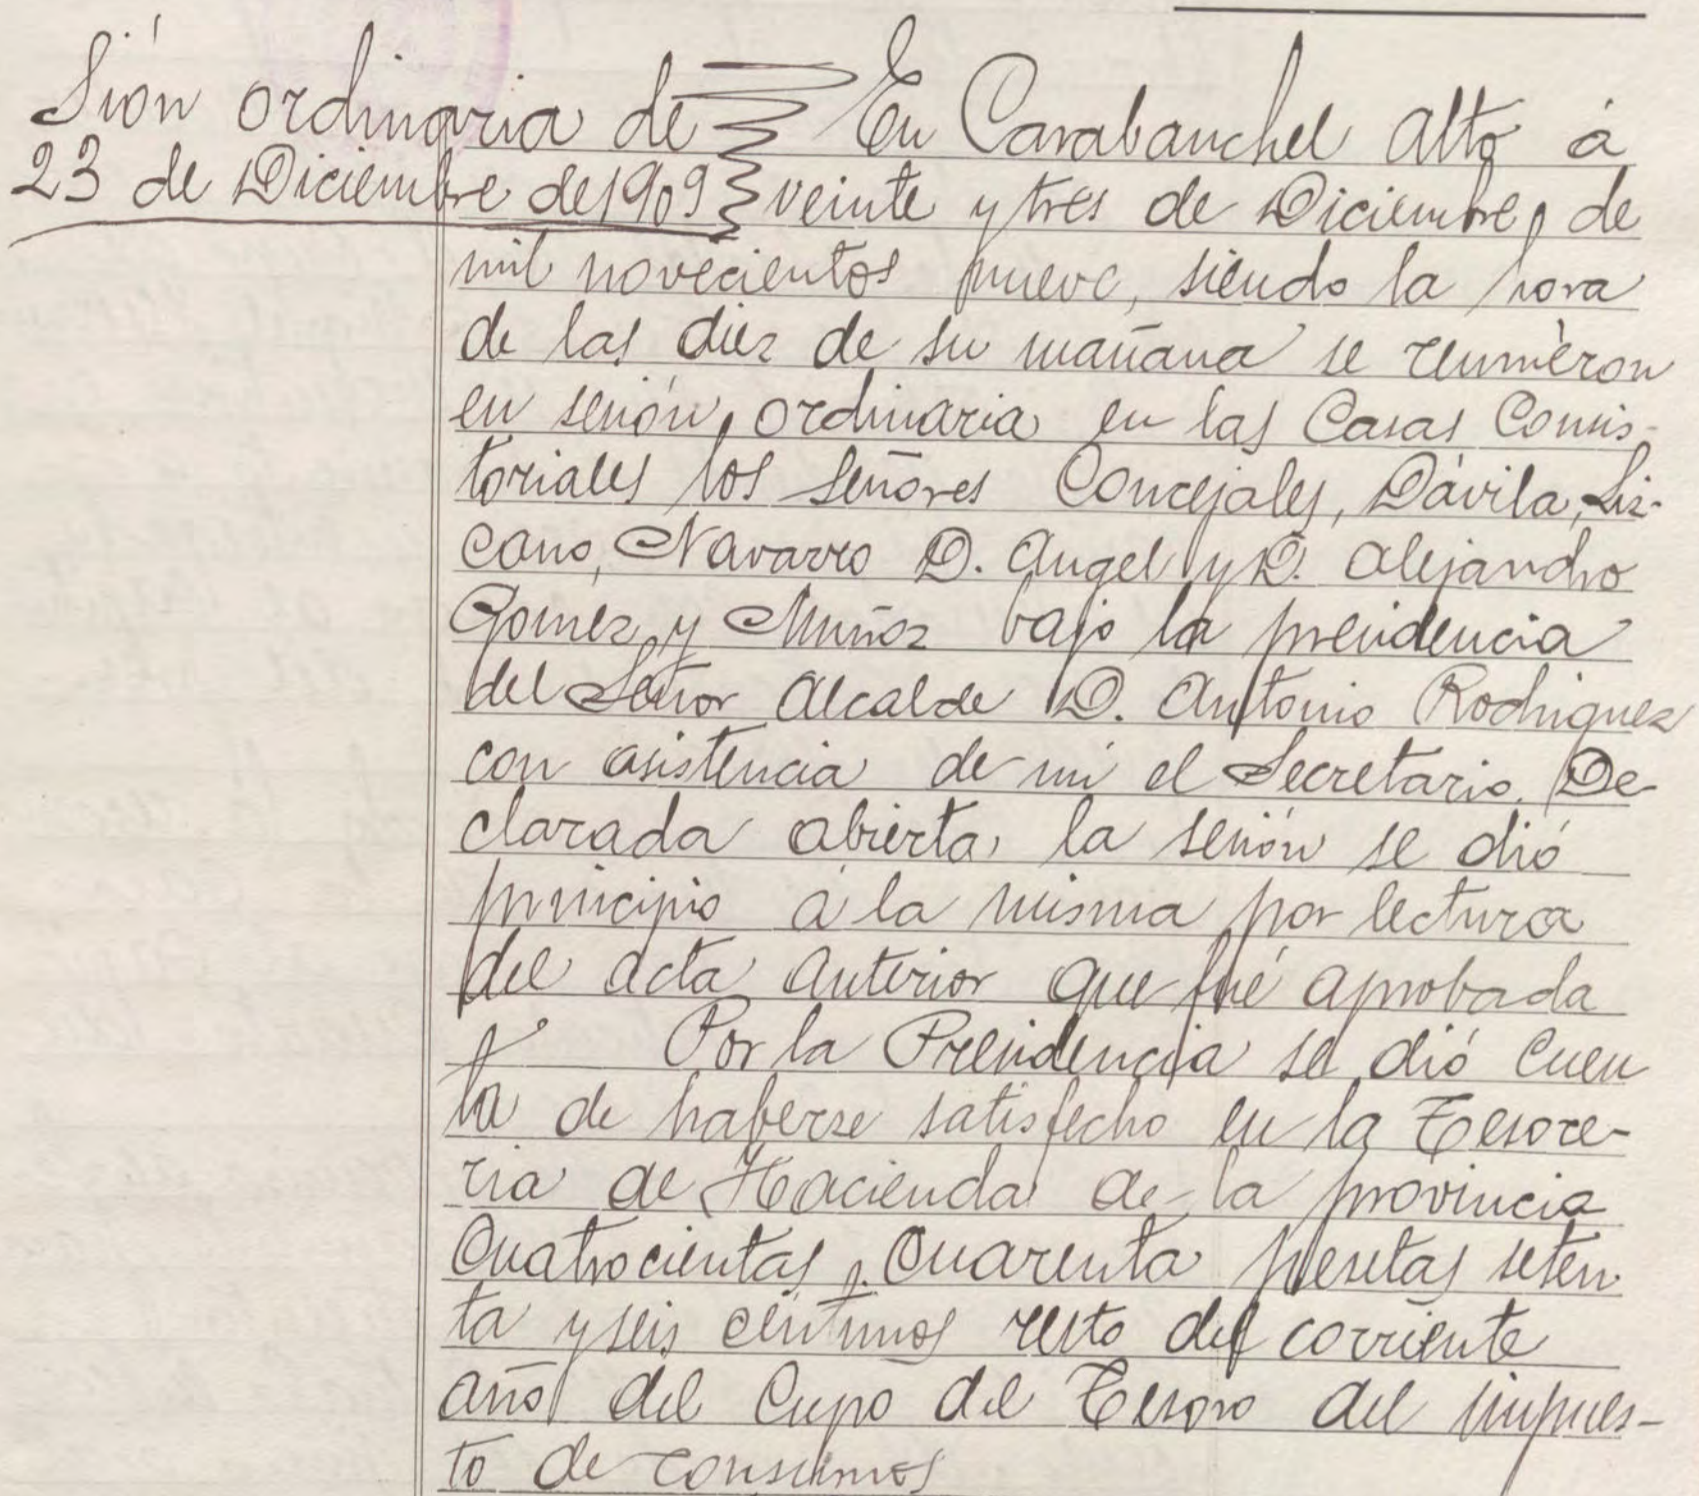 Sión ordinaria de
23 de Diciembre de 1909
En Carabanchel Alto á
veinte y tres de Diciembre de
mil novecientos nueve, siendo la hora
de las diez de su mañana se reunieron
en sesión ordinaria en las Casas Consis-
toriales los Señores Concejales, Dávila, Liz-
cano, Navarro D. Angel y D. Alejandro
Gomez y Muñoz bajo la presidencia
del Señor Alcalde D. Antonio Rodriguez
con asistencia de mi el Secretario. De-
clarada abierta la sesión se dió
principio á la misma por lectura
del acta anterior que fué aprobada
Por la Presidencia se dió cuen
ta de haberse satisfecho en la Tesore-
ria de Hacienda de la provincia
Cuatrocientas cuarenta pesetas seten
ta y seis céntimos resto del corriente
año del Cupo del Tesoro del impues-
to de consumos